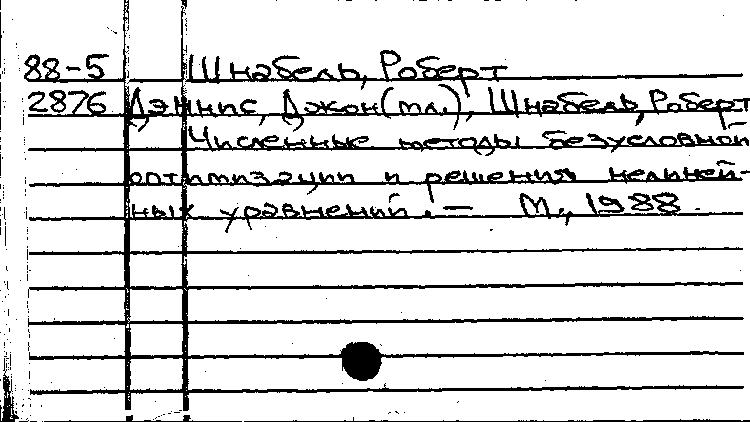 88-5 Шнабель, Роберт
2876 Дэннис, Джон (мл.), Шнабель, Роберт
Численные методы безусловной
оптимизации и решения нелиней-
ных уравнений. — М., 1988.